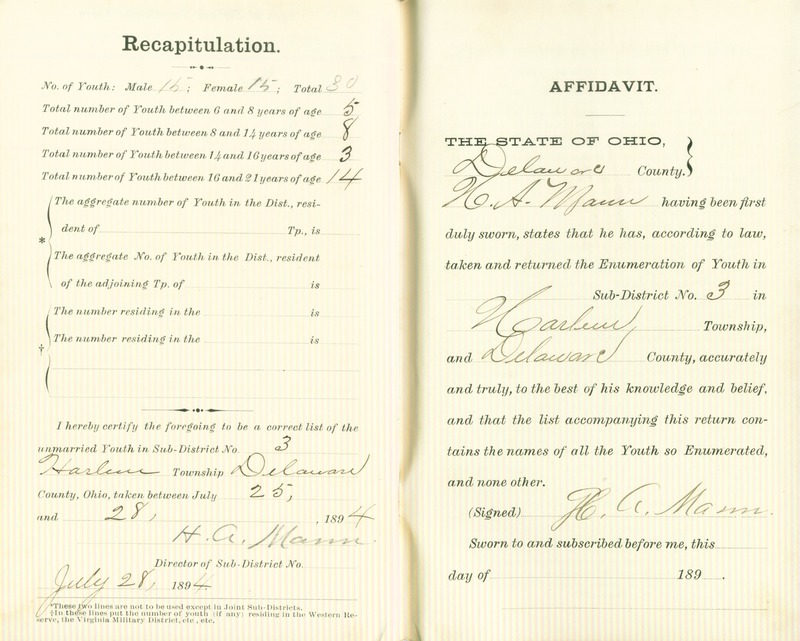 Recapitulation.
No. of Youth: Male 15; Female 15; Total 30
Total number of Youth between 6 and 8 years of age 5
Total number of Youth between 8 and 14 years of age 8
Total number of Youth between 14 and 16 years of age 3
Total number of Youth between 16 and 21 years of age 14
The aggregate number of Youth in the Dist., resi-
dent of Tp., is
*
The aggregate No. of Youth in the Dist., resident
of the adjoining Tp. of is
The number residing in the is
†
The number residing in the is
I hereby certify the foregoing to be a correct list of the
unmarried Youth in Sub-District No. 3
Harlem Township Delaware
County, Ohio, taken between July 25,
and 28, , 1894
H. A. Mann.
Director of Sub-District No.
July 28, 1894.
*These two lines are not to be used except in Joint Sub-Districts.
†In these lines put the number of youth (if any) residing in the Western Re-
serve, the Virginia Military District, etc., etc.
AFFIDAVIT.
THE STATE OF OHIO,
Delaware County.
H. A. Mann having been first
duly sworn, states that he has, according to law,
taken and returned the Enumeration of Youth in
Sub-District No. 3 in
Harlem Township,
and Delaware County, accurately
and truly, to the best of his knowledge and belief,
and that the list accompanying this return con-
tains the names of all the Youth so Enumerated,
and none other.
(Signed) H. A. Mann.
Sworn to and subscribed before me, this
day of 189 .